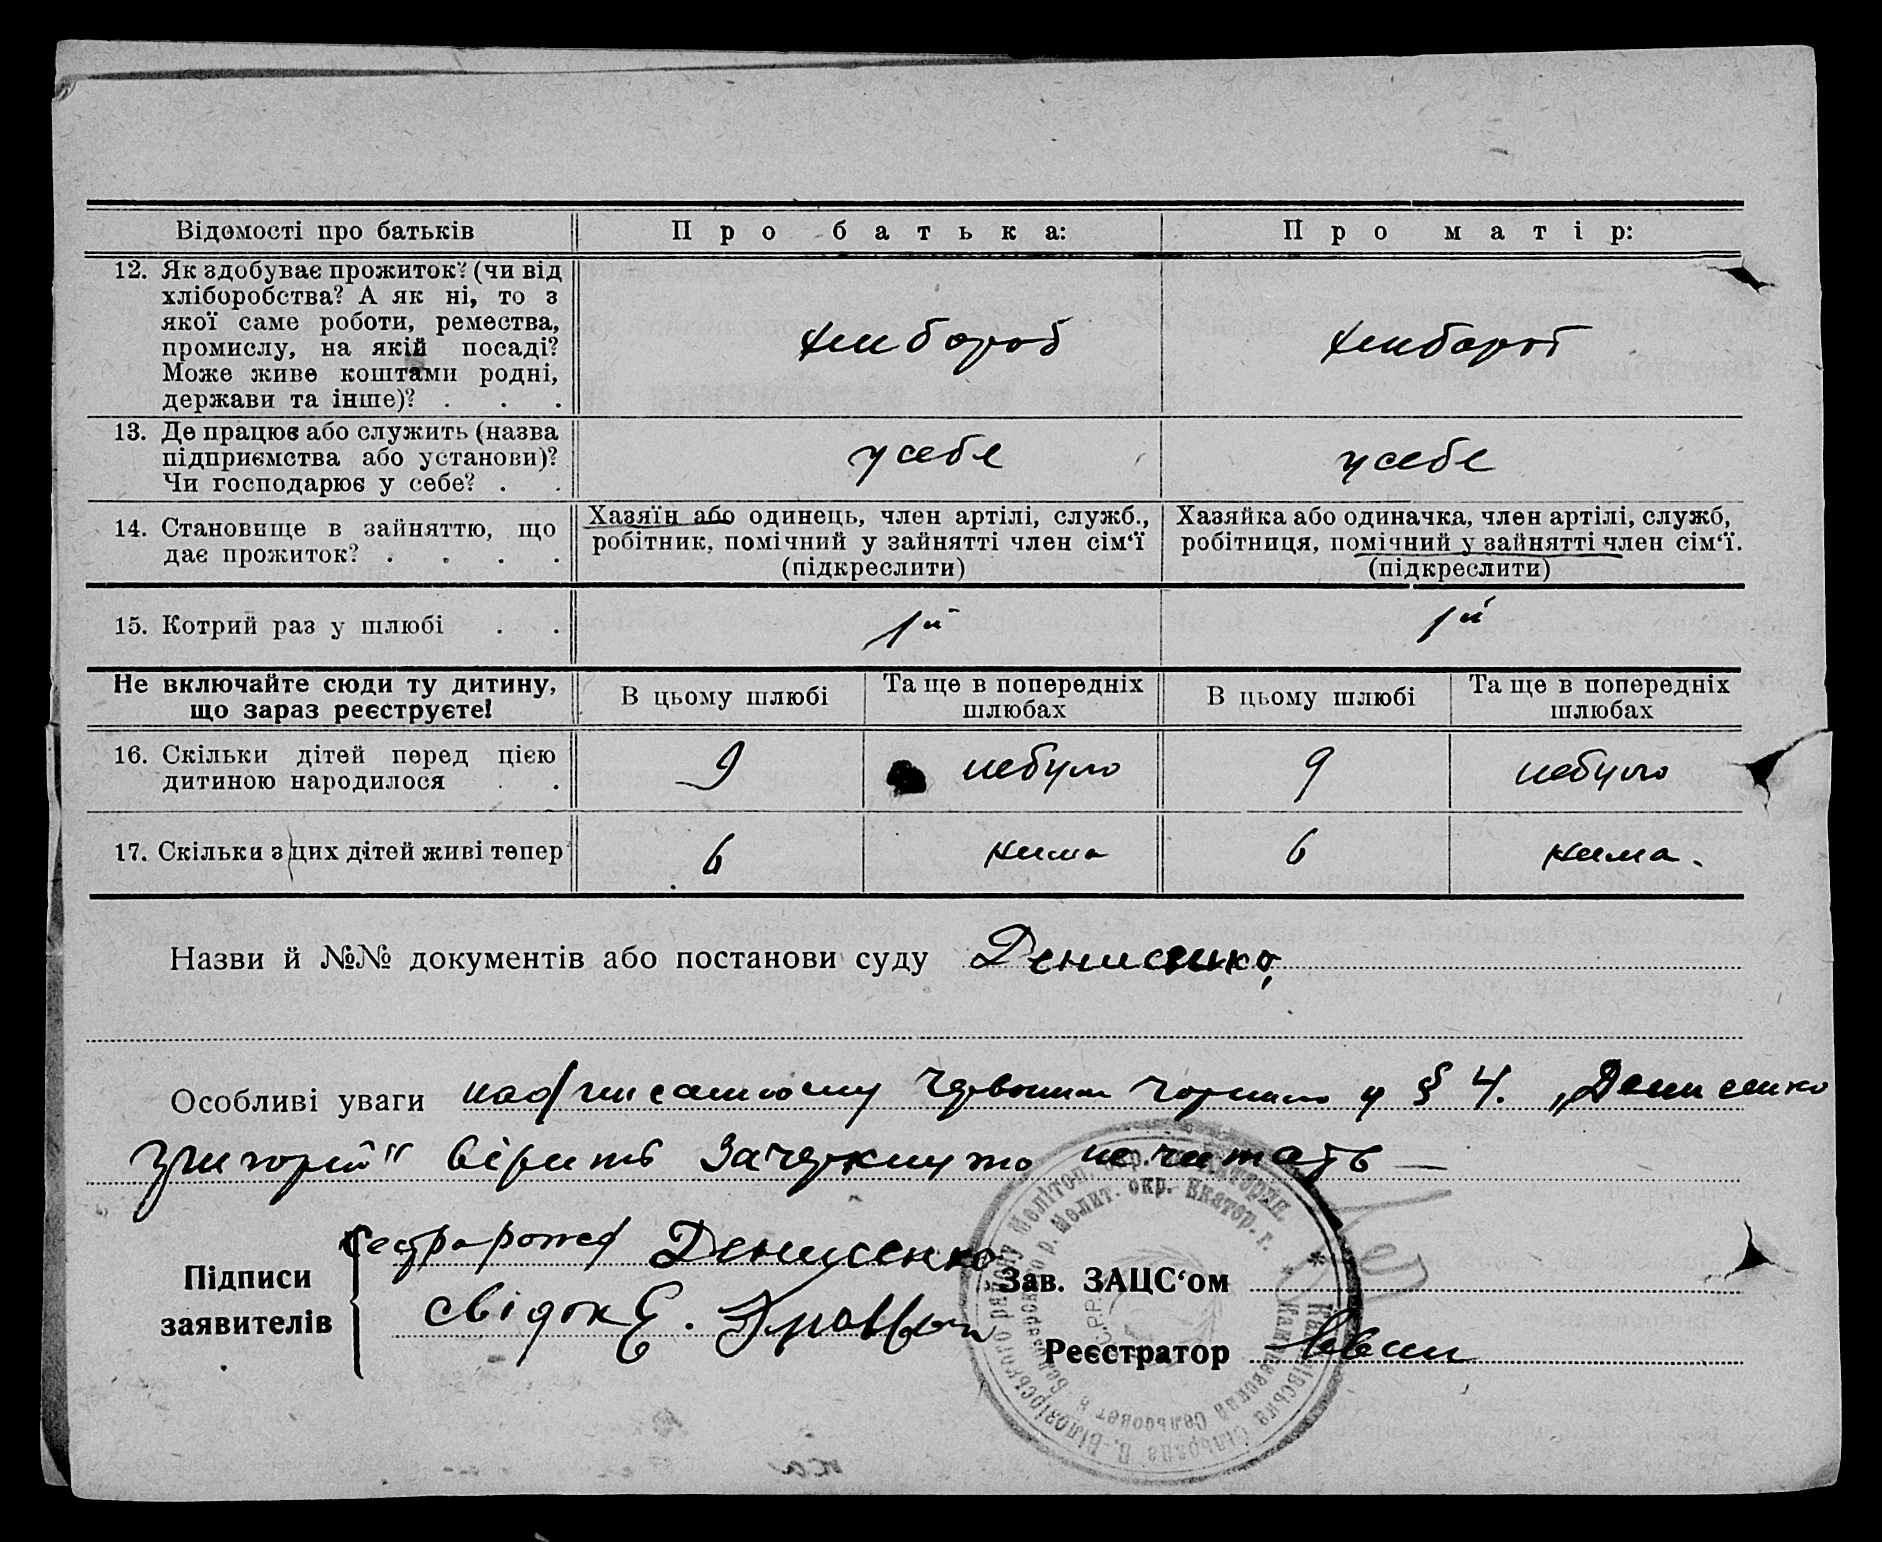 Відомості про батьків
Про батька:
Про матір:
12. Як здобуває прожиток? (чи від
хліборобства? А як ні, то з
якої саме роботи, ремества,
промислу, на якій посаді?
Може живе коштами родні,
держави та інше)? . . .
хлибороб
хлибороб
13. Де працює або служить (назва
підприємства або установи)?
Чи господарює у себе? . .
у себе
у себе
14. Становище в зайняттю, що
дає прожиток? . . . .
Хазяїн або одинець, член артілі, служб.,
робітник, помічний у зайнятті член сім‘ї
(підкреслити)
Хазяйка або одиначка, член артілі, служб,
робітниця, помічний у зайнятті член сім‘ї.
(підкреслити)
15. Котрий раз у шлюбі . .
1й
1й
Не включайте сюди ту дитину,
що зараз реєструєте!
В цьому шлюбі
Та ще в попередніх
шлюбах
В цьому шлюбі
Та ще в попередніх
шлюбах
16. Скільки дітей перед цією
дитиною народилося . .
9
небуло
9
небуло
17. Скільки з цих дітей живі тепер
6
нима
6
нима.
Назви й №№ документів або постанови суду Денисенко,
Особливі уваги надписанному червоним чорнило у § 4. „Денисенко
Григорій“ вірить Зачеркнуто не читать —
Підписи
заявителів
Денисенко
свідок Е.
Зав. ЗАЦС‘ом
Реєстратор